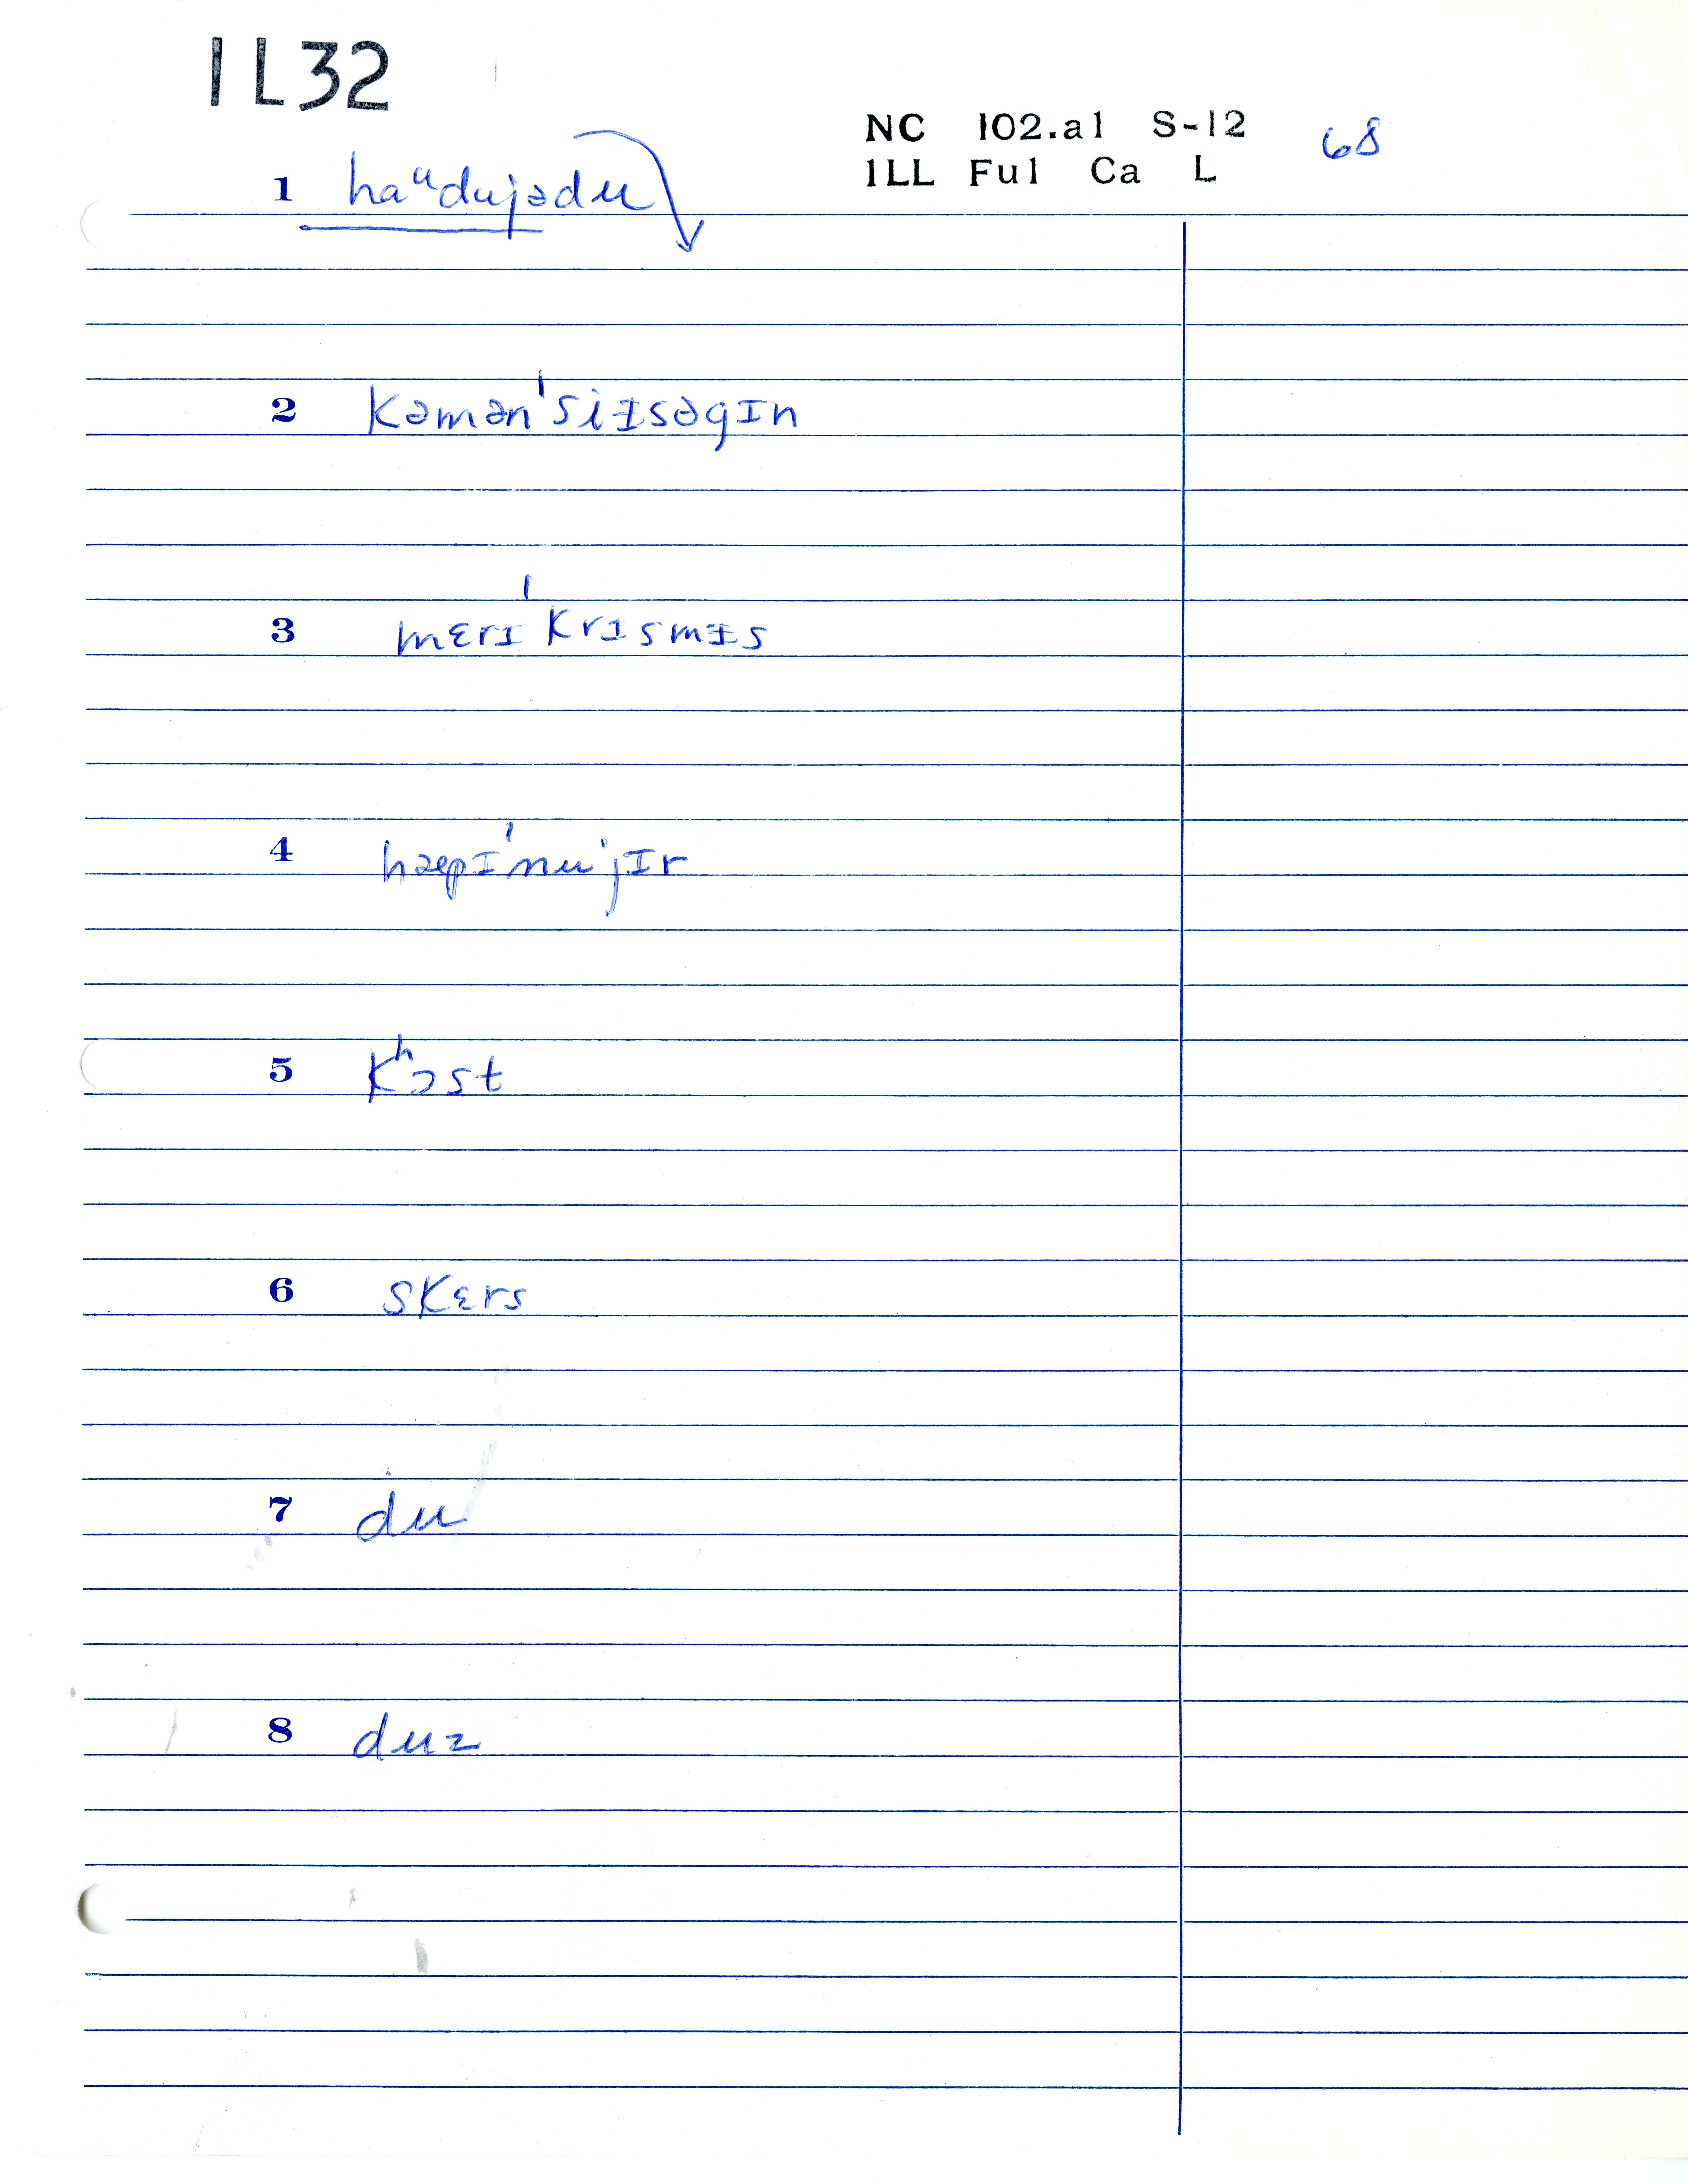 IL32
NC 102.a1 S-12 68
ILL Ful Ca L
1 haᵘdujədu
2 kəmənˈsiɪsəgɪn
3 mɛrɪˈkrɪsmɪs
4 hæpɪˈnuˈjɪr
5 kʰɔst
6 skɛrs
7 du
8 duz